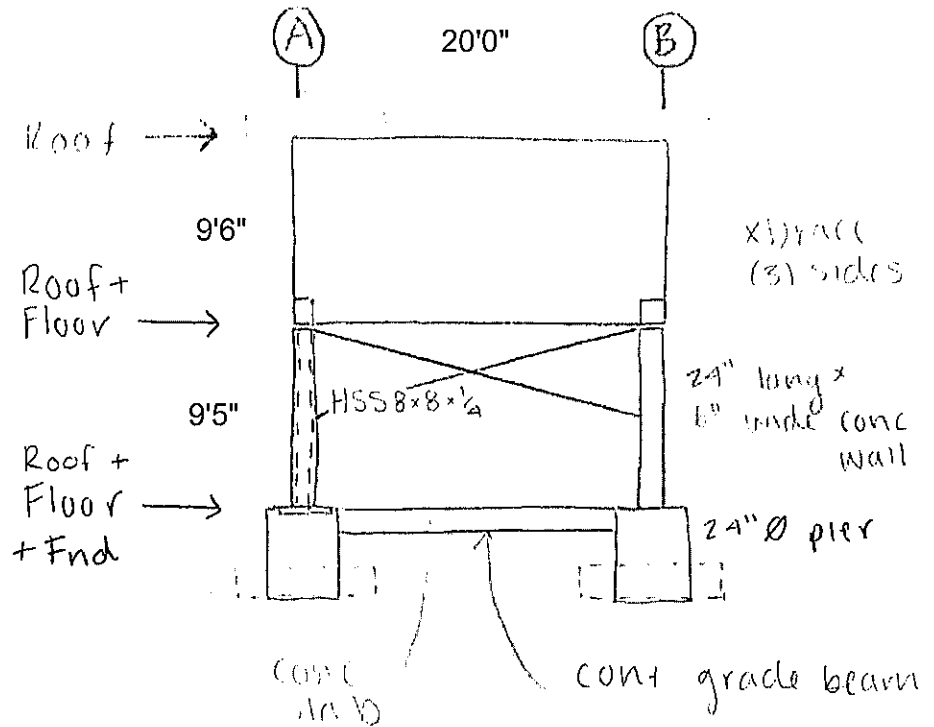 A
20'0"
B
Roof
9'6"
xbrace
(3) sides
Roof +
Floor
HSS 8x8x1/4
24" long x
6" wide conc
wall
9'5"
Roof +
Floor
+ Fnd
24" Ø pier
conc
slab
cont grade beam